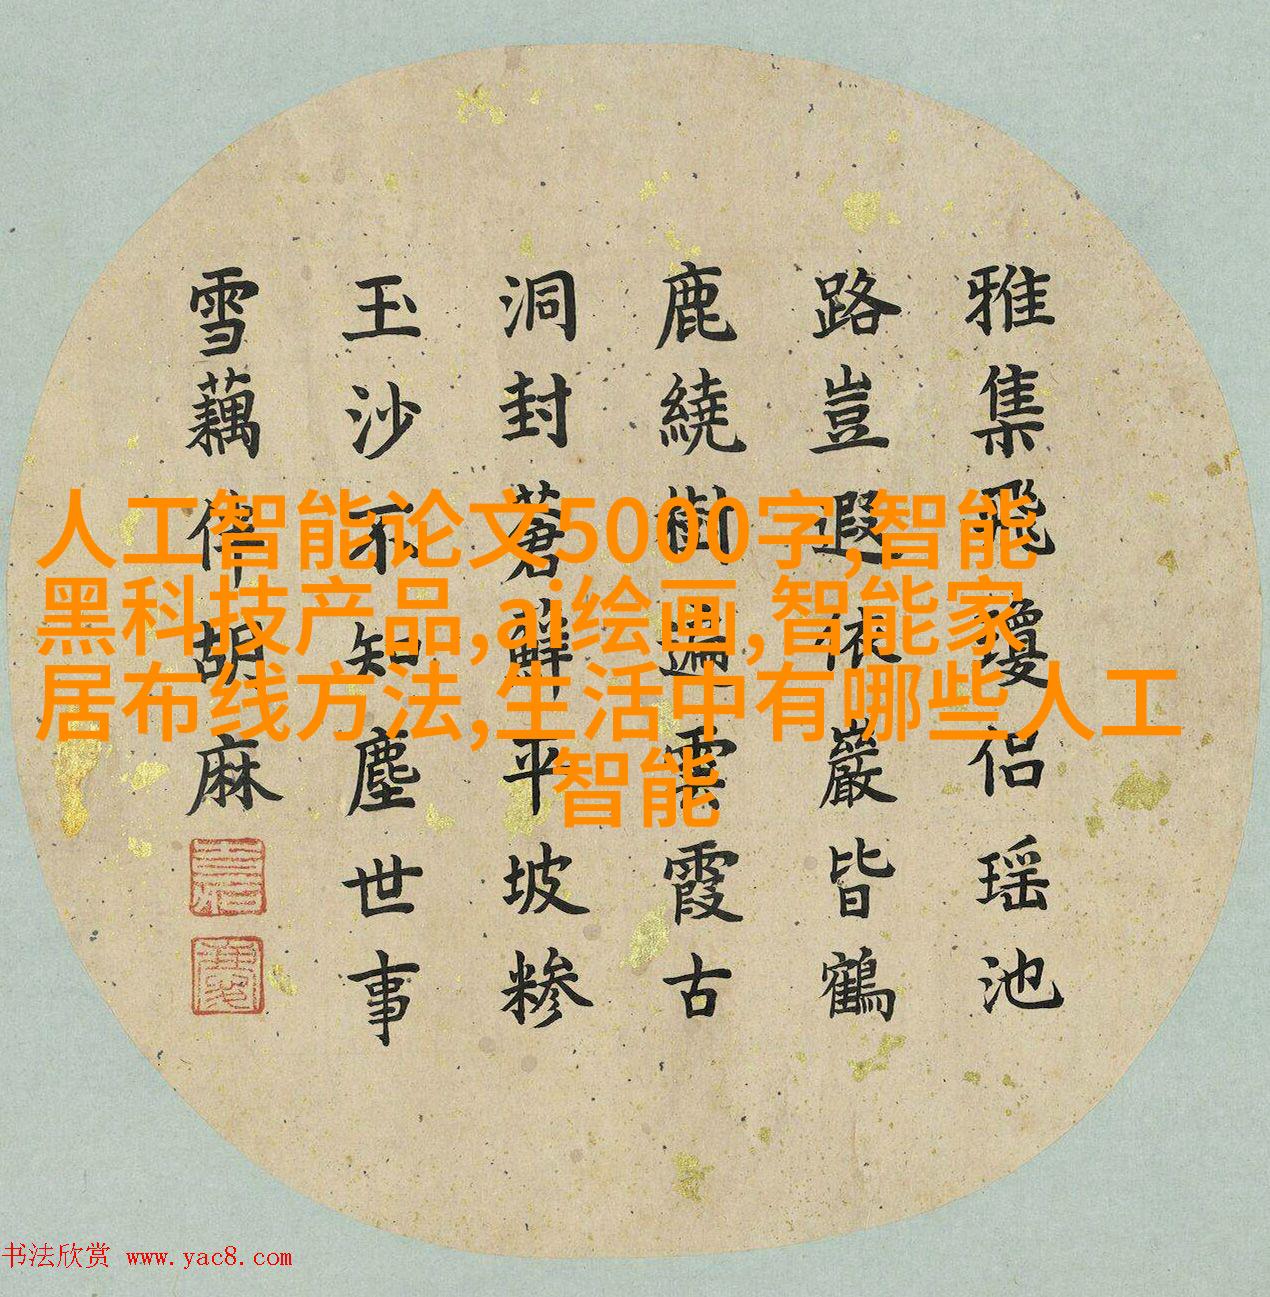 雅集飛瓊侣瑶池
路豈遐依巖皆鶴
鹿繞樹遍雲霞古
洞封蒼蘚平坡糝
玉沙不知塵世事
雪藕侔胡麻
人工智能论文5000字,智能
黑科技产品,ai绘画,智能家
居布线方法,生活中有哪些人工
智能
书法欣赏 www.yac8.com